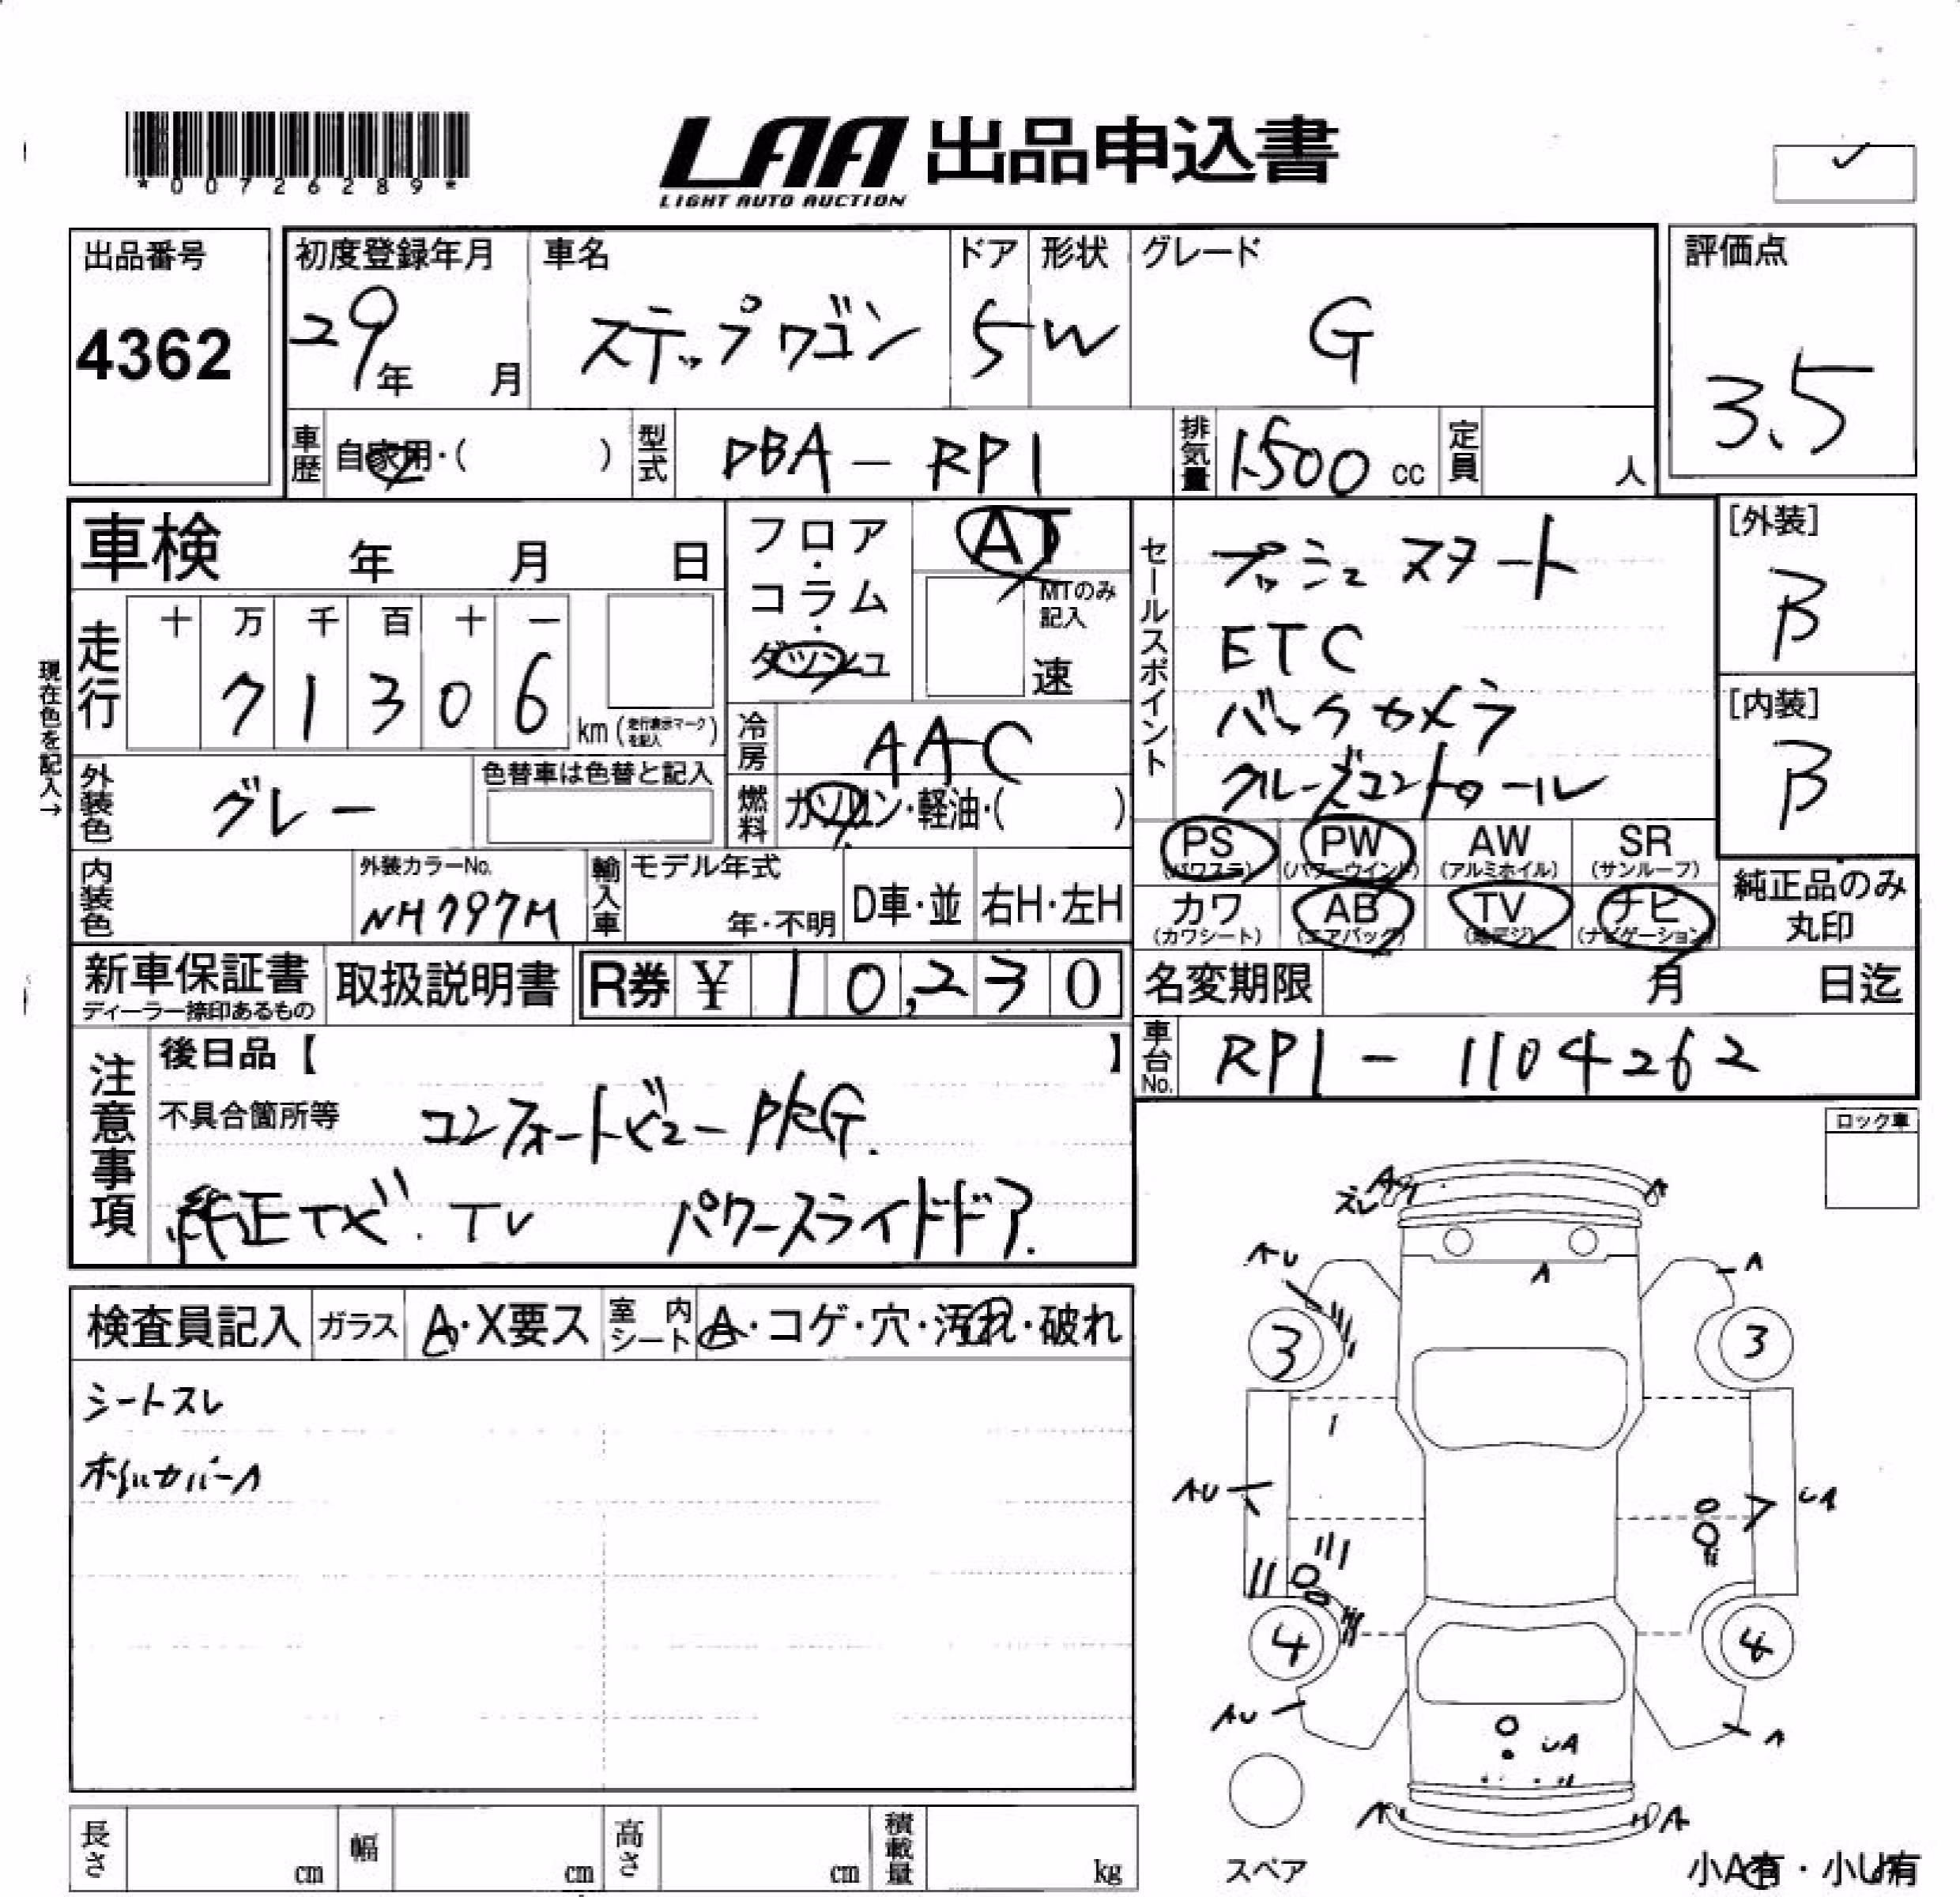 *00726289*
LAA 出品申込書
LIGHT AUTO AUCTION
出品番号
4362
初度登録年月
29年 月
車名
ステップワゴン
ドア
5
形状
W
グレード
G
評価点
3.5
車歴 自家用・( )
型式 DBA-RP1
排気量 1500 cc
定員 人
車検 年 月 日
フロア・コラム・ダッシュ
AT
MTのみ記入
速
セールスポイント
プッシュスタート
ETC
バックカメラ
クルーズコントロール
[外装]
B
[内装]
B
現在色を記入→
走行
十 万 千 百 十 一
7 1 3 0 6
km (走行表示マークを記入)
冷房 AAC
外装色 グレー
色替車は色替と記入
燃料 ガソリン・軽油・( )
PS (パワステ)
PW (パワーウインド)
AW (アルミホイル)
SR (サンルーフ)
カワ (カワシート)
AB (エアバック)
TV (地デジ)
ナビ (ナビゲーション)
純正品のみ丸印
内装色
外装カラーNo.
NH797M
輸入車
モデル年式
年・不明
D車・並
右H・左H
新車保証書
ディーラー捺印あるもの
取扱説明書
R券 ¥ 10,230
名変期限 月 日迄
車台No. RP1-1104262
注意事項
後日品【 】
不具合箇所等
コンフォートビューPKG.
純正ナビ. TV パワースライドドア.
ロック車
検査員記入
ガラス A・X要ス
室内シート A・コゲ・穴・汚れ・破れ
シートスレ
ホイルカバーA
ズレ
A
A
AU
A
A
3
3
AU
UA
4
4
AU
UA
A
A
A
スペア
小A有・小U有
長さ cm
幅 cm
高さ cm
積載量 kg